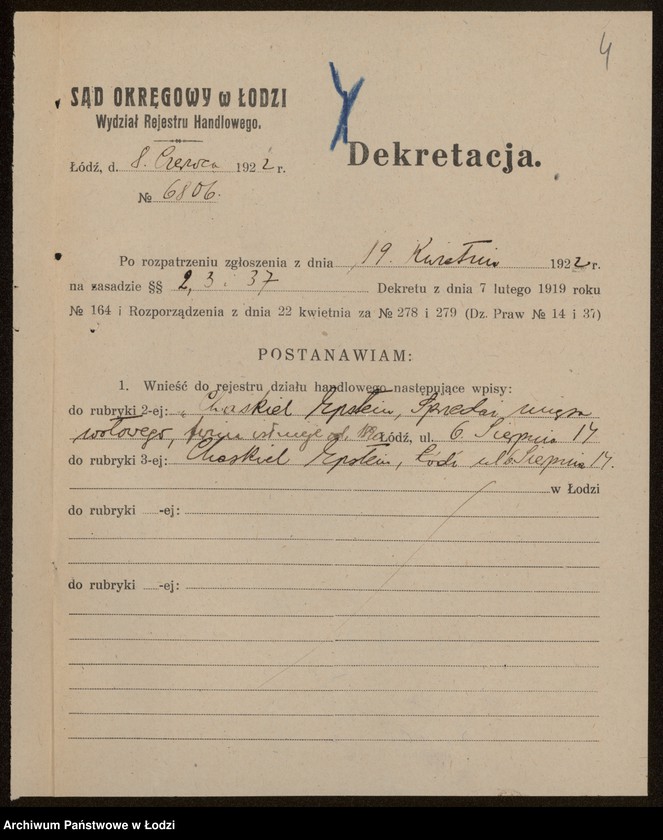 4
SĄD OKRĘGOWY w ŁODZI
Wydział Rejestru Handlowego.
Dekretacja.
Łódź, d. 8. Czerwca 1922 r.
№ 6806.
Po rozpatrzeniu zgłoszenia z dnia 19. Kwietnia 1922 r.
na zasadzie §§ 2, 3. 37 Dekretu z dnia 7 lutego 1919 roku
№ 164 i Rozporządzenia z dnia 22 kwietnia za № 278 i 279 (Dz. Praw № 14 i 37)
POSTANAWIAM:
1. Wnieść do rejestru działu handlowego następujące wpisy:
do rubryki 2-ej: „Chaskiel Epstein, Sprzedaż mięsa
wołowego, firma istnieje od Łódź, ul. 6. Sierpnia 17
do rubryki 3-ej: Chaskiel Epstein, Łódź ul 6 Sierpnia 17.
w Łodzi
do rubryki -ej:
do rubryki -ej:
Archiwum Państwowe w Łodzi